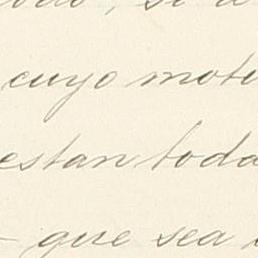 cuyo moti
estan toda
- que sea